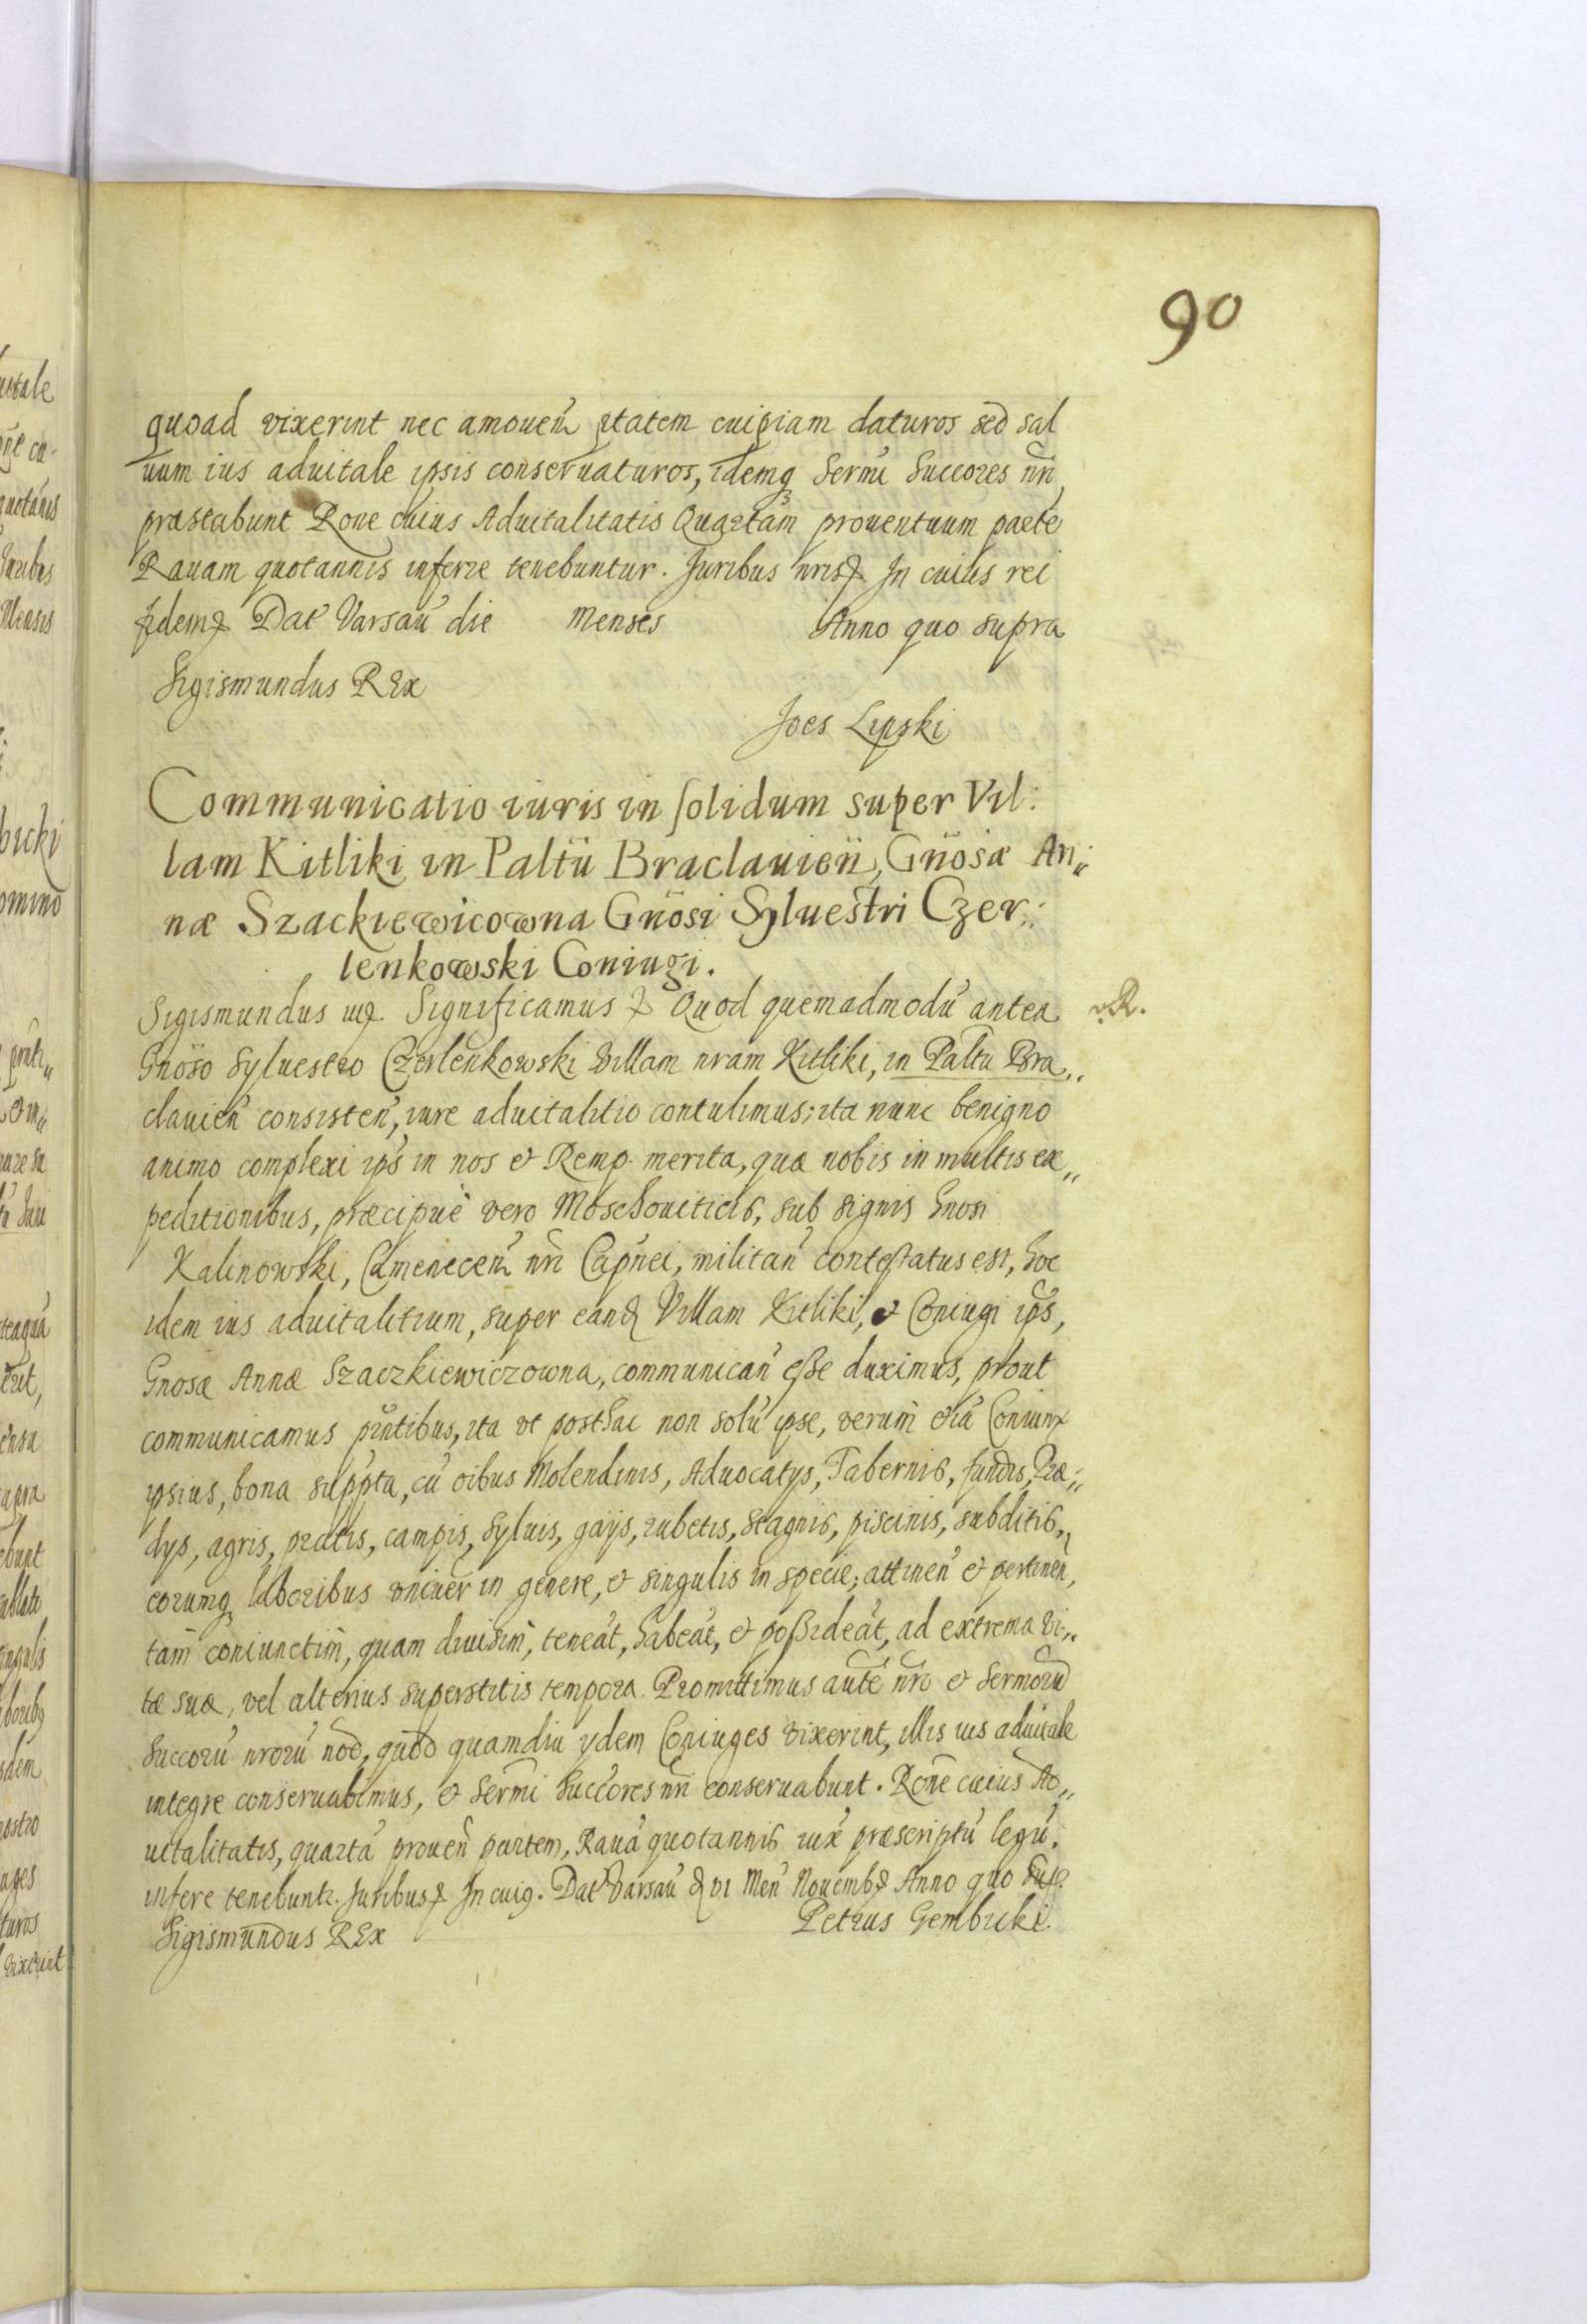 90
quoad vixerint nec amoueñ ptatem cuipiam daturos sed sal
uum ius aduitale ipsis conseruaturos, idemq Sermi Succores nri
præstabunt Rone cuius Aduitalitatis Quartam prouentuum parte
Rauam quotannis inferre tenebuntur. Juribus nris In cuius rei
fidem Dat Varsau die Menses Anno quo supra
Sigismundus REx
Joes Lipski
Communicatio iuris in solidum super Vil:
lam Kitliki in Paltu Braclauień, Gnosæ An
næ Szackiewicowna Gnosi Syluestri Czer:
lenkowski Coniugi.
Sigismundus Significamus Quod quemadmodu antea R.
Gnoso Syluestro Czerlenkowski Villam nram Kitliki, in Paltu Bra
clauień consisteń, iure aduitalitio contulimus; ita nunc benigno
animo complexi ips in nos et Remp. merita, quæ nobis in multis ex
peditionibus, præcipuè vero Moschouiticis, sub signis Gnosi
Kalinowski, Cameneceñ nri Capnei, militań contestatus est, hoc
idem ius aduitalitium, super eand Villam Kitliki, et Coniugi ips,
Gnosæ Annæ Szaczkiewiczowna, communicań esse duximus, prout
communicamus pntibus, ita vt posthac non solu ipse, verum etia Coniunx
ipsius, bona suppta, cu oibus Molendinis, Aduocatys, Tabernis, fundis, Præ
dys, agris, pratis, campis, syluis, gays, rubetis, stagnis, piscinis, subditis,
eorumq laboribus vniuer in genere, et singulis in specie; attineń et pertineń,
tam coniunctim, quam diuisim, teneat, habeat, et possideat, ad extrema vi
tæ suæ, vel alterius superstitis tempora. Promittimus aute nro et Sermoru
Succoru nroru noe, quod quamdiu ydem Coniuges vixerint, illis ius aduitale
integre conseruabimus, et Sermi Succores nri conseruabunt. Rone cuius Ad
uitalitatis, quarta proueń partem, Raua quotannis iux præscriptu legu,
infere tenebuntr. Juribus In cuig. Dat Varsau d VI Meń Nouemb Anno quo sup.
Sigismundus REx Petrus Gembicki.